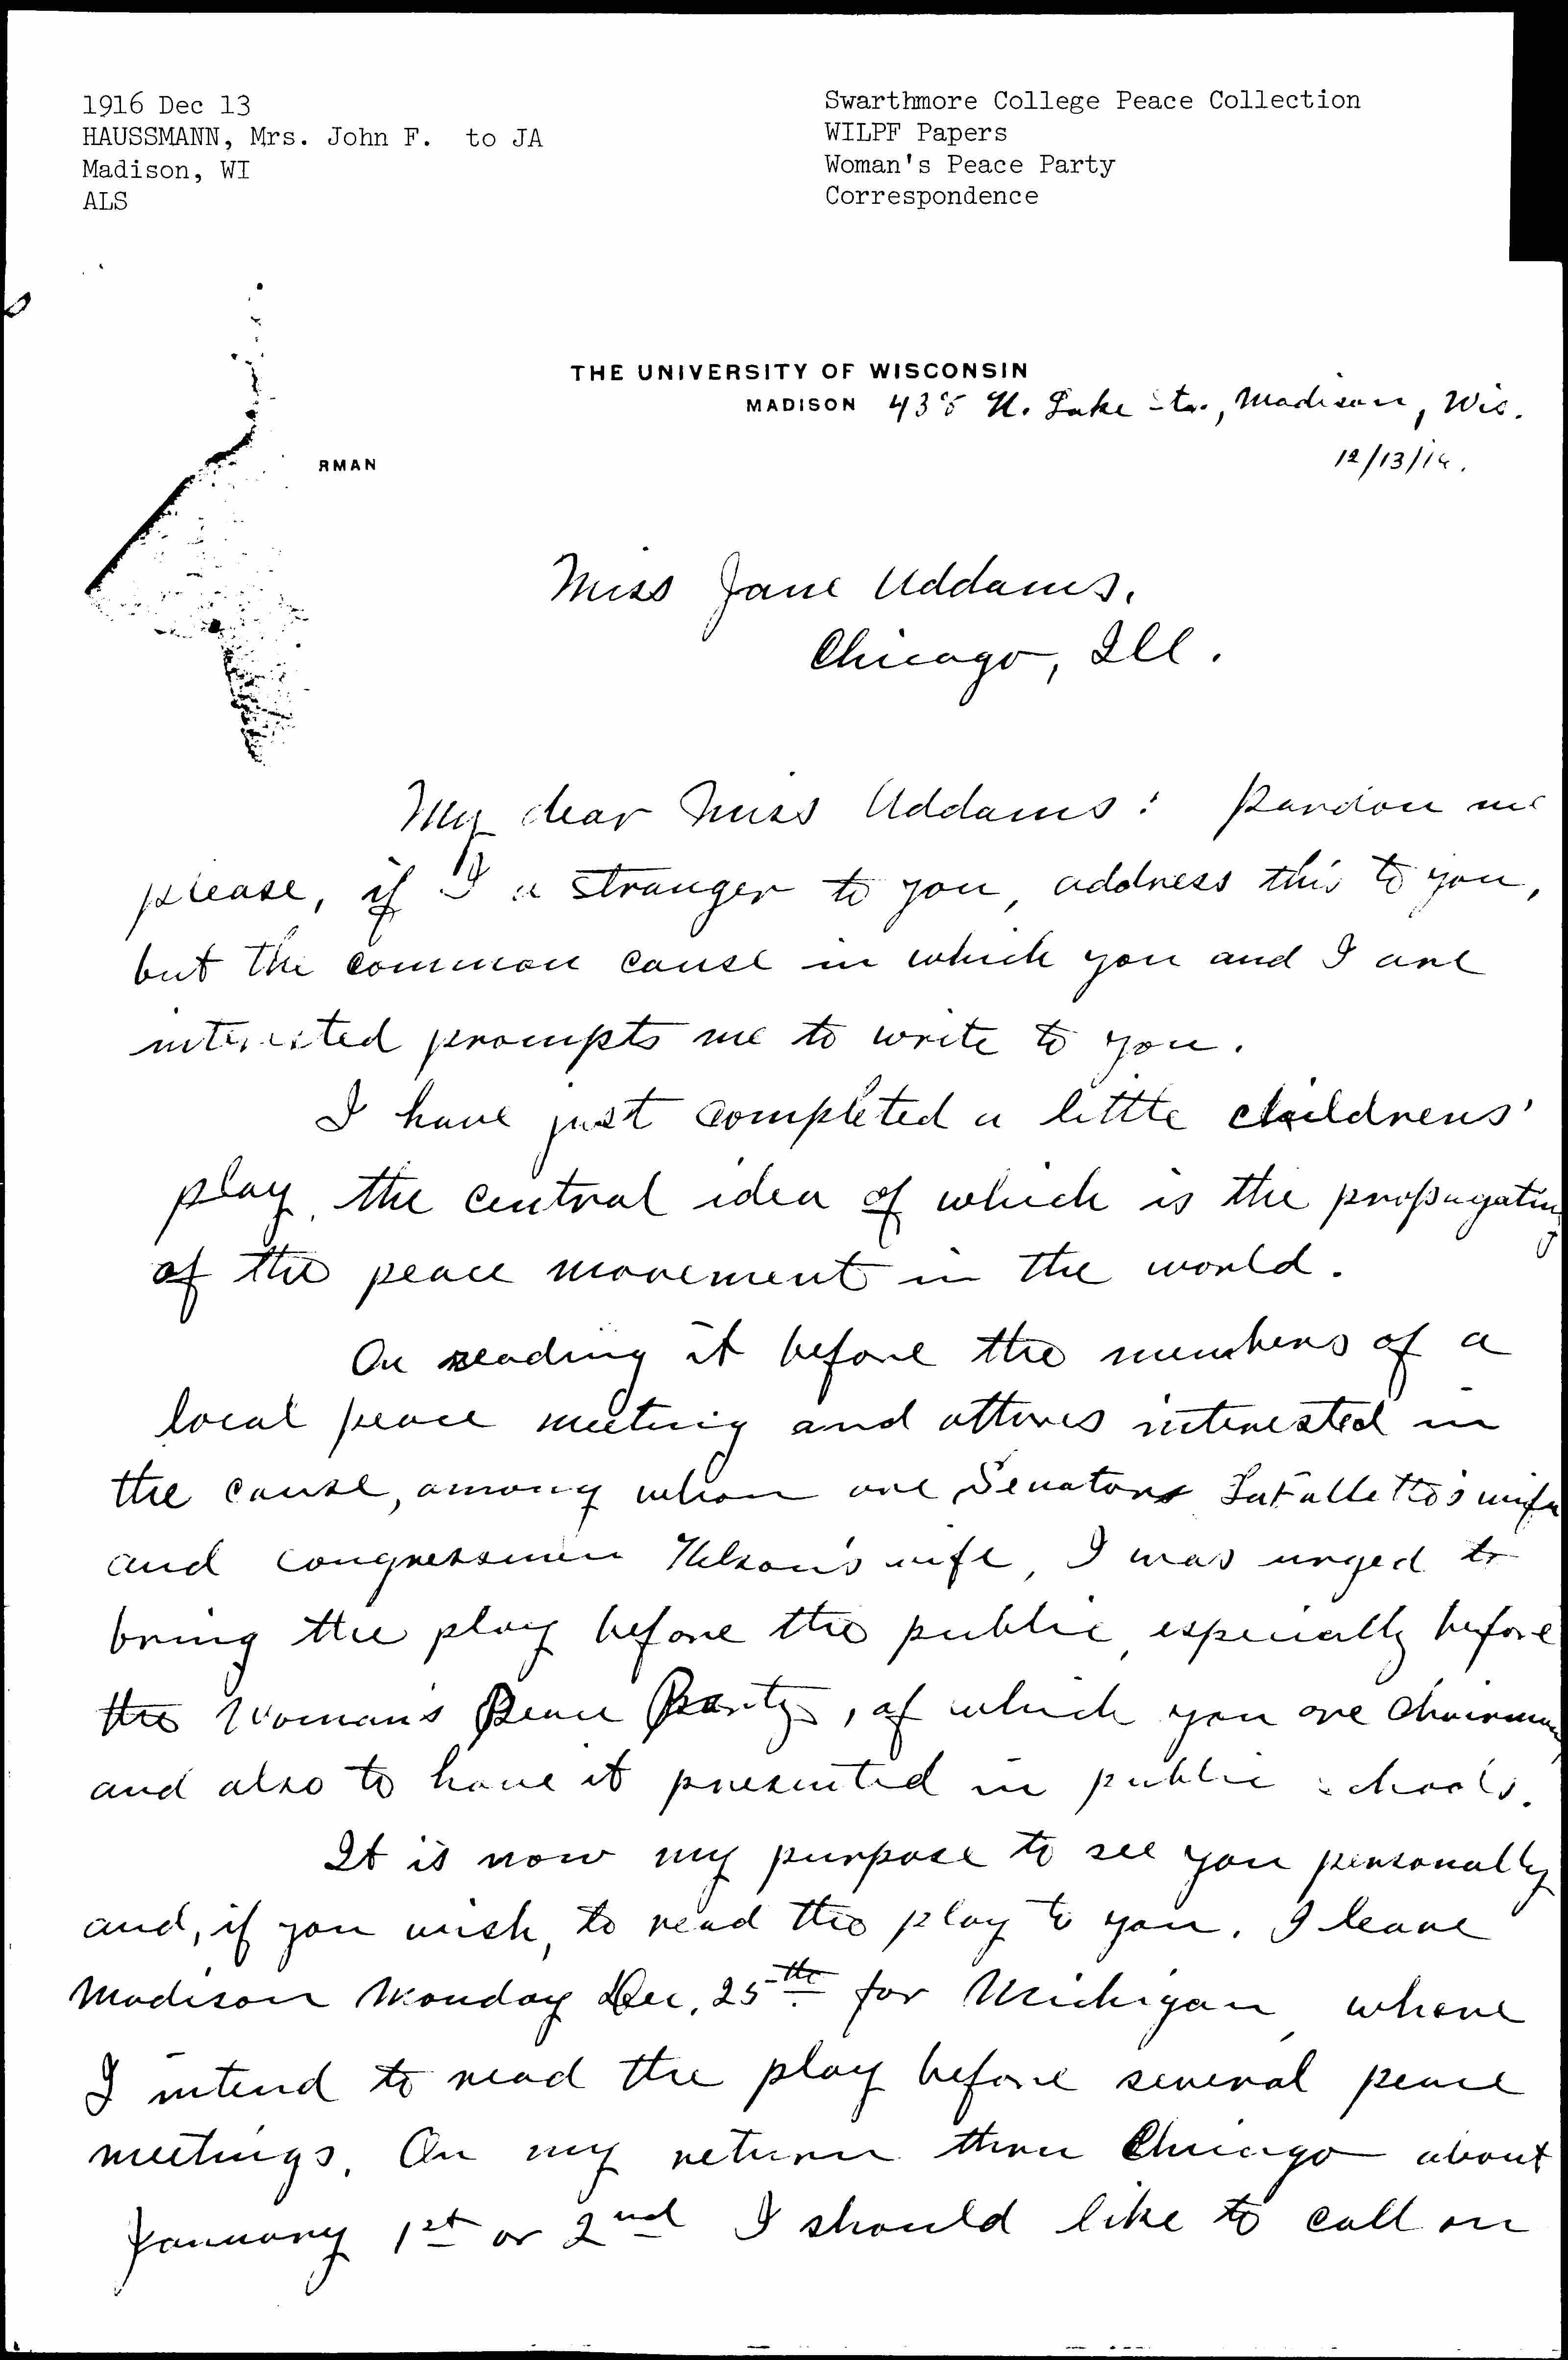 1916 Dec 13
HAUSSMANN, Mrs. John F. to JA
Madison, WI
ALS
Swarthmore College Peace Collection
WILPF Papers
Woman's Peace Party
Correspondence
THE UNIVERSITY OF WISCONSIN
MADISON 435 N. Lake str., Madison, Wis.
12/13/16.
RMAN
Miss Jane Addams,
Chicago, Ill.
My dear Miss Addams: Pardon me
please, if I a stranger to you, address this to you,
but the common cause in which you and I are
interested prompts me to write to you.
I have just completed a little childrens'
play, the central idea of which is the propagating
of the peace movement in the world.
On reading it before the members of a
local peace meeting and others interested in
the cause, among whom are Senator LaFollette's wife
and Congressmen Nelson's wife, I was urged to
bring the play before the public, especially before
the Woman's Peace Party, of which you are chairman
and also to have it presented in public schools.
It is now my purpose to see you personally
and, if you wish, to read the play to you. I leave
Madison Monday Dec. 25th for Michigan, where
I intend to read the play before several peace
meetings. On my return thru Chicago about
January 1st or 2nd I should like to call on